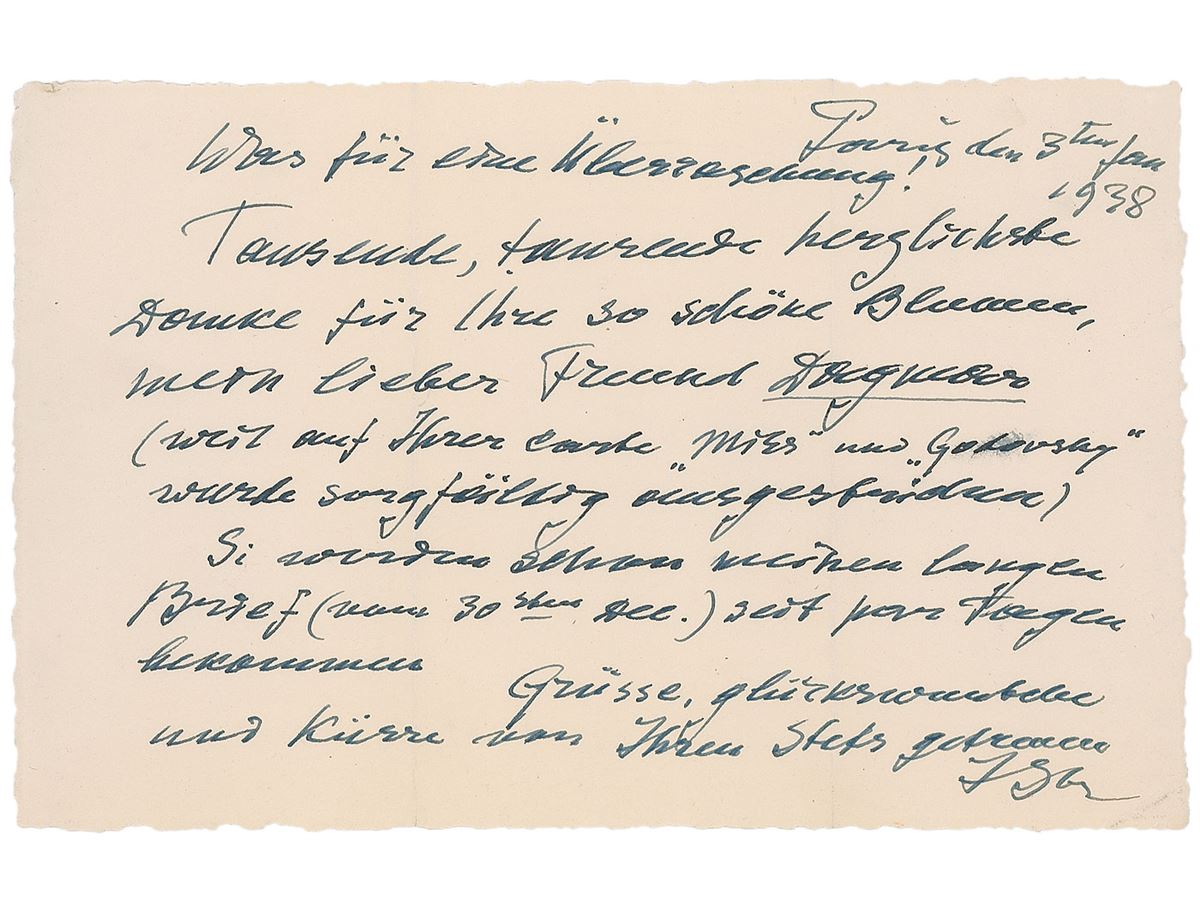 Paris den 3ten Jan
1938
Was für eine Überraschung!
Tausende, tausende herzlichste
Danke für Ihre so schöne Blumen,
mein lieber Freund Dagmar
(weil auf Ihrer Carte „Miss“ und „Godovsky“
wurde sorgfältig ausgestrichen)
Si werden schon meinen langen
Brief (vom 30sten Dec.) seit par Tagen
bekommen
Grüsse, glückswünsche
und Küsse von Ihren Stets getreuen